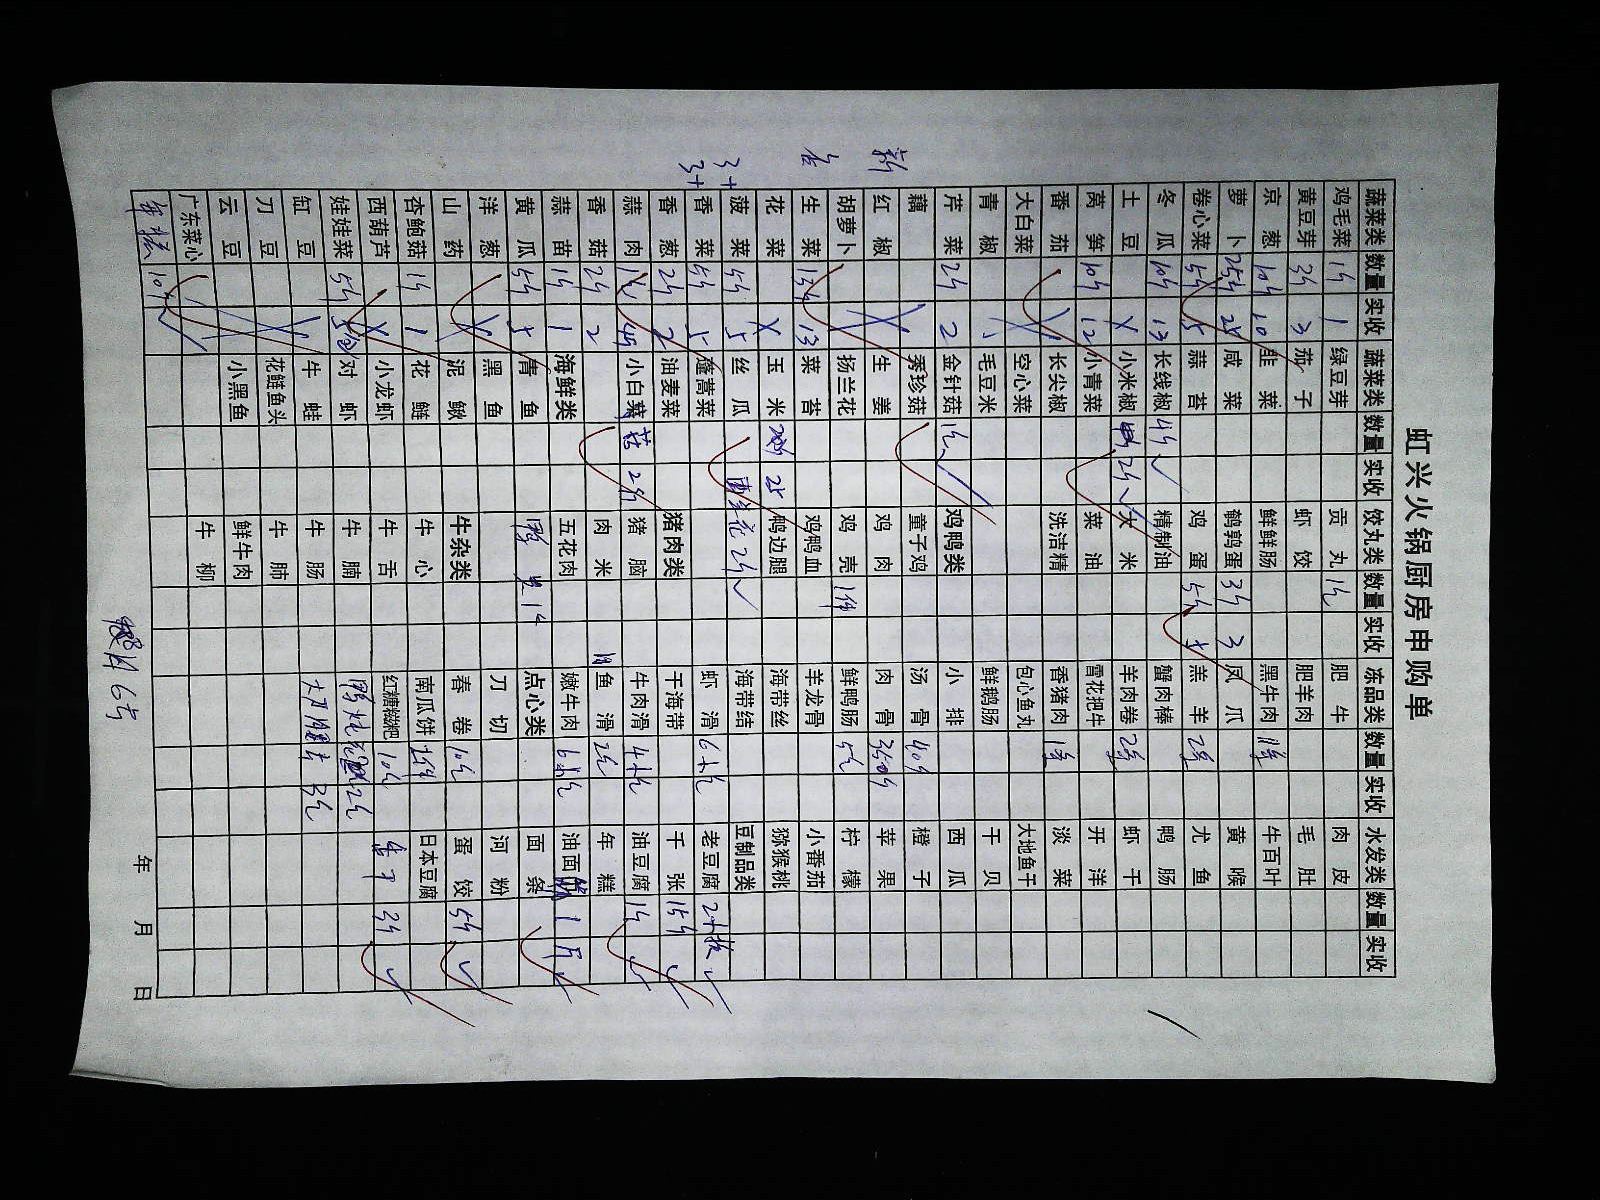 虹兴火锅厨房申购单
蔬菜类 数量 实收 蔬菜类 数量 实收 饺丸类 数量 实收 冻品类 数量 实收 水发类 数量 实收
鸡毛菜 1斤 1 绿豆芽 贡丸 1包 肥牛 肉皮
黄豆芽 3斤 3 茄子 虾饺 肥羊肉 毛肚
京葱 10斤 10 韭菜 鲜鲜肠 黑牛肉 1件 牛百叶
萝卜 25斤 25 咸菜 鹌鹑蛋 3斤 3 凤爪 黄喉
卷心菜 5斤 5 蒜苔 鸡蛋 5斤 羔羊 2件 尤鱼
冬瓜 10斤 13 长线椒 4斤 精制油 蟹肉棒 鸭肠
土豆 小米椒 2斤 大米 羊肉卷 2件 虾干
莴笋 10斤 12 小青菜 菜油 雪花把牛 开洋
番茄 长尖椒 洗洁精 香猪肉 1件 淡菜
大白菜 空心菜 包心鱼丸 大地鱼干
青椒 毛豆米 鲜鹅肠 干贝
芹菜 2斤 2 金针菇 1包 鸡鸭类 小排 西瓜
藕 秀珍菇 童子鸡 汤骨 40斤 橙子
红椒 生姜 鸡肉 肉骨 苹果
胡萝卜 扬兰花 鸡壳 1件 鲜鸭肠 5包 柠檬
生菜 13斤 13 菜苔 鸡鸭血 羊龙骨 小番茄
花菜 玉米 25 鸭边腿 海带丝 猕猴桃
菠菜 5斤 5 丝瓜 西兰花 2斤 海带结 豆制品类
香菜 5斤 5 蓬蒿菜 虾滑 老豆腐
香葱 2斤 2 油麦菜 猪肉类 干海带 千张
蒜肉 小白菜 2斤 猪脑 牛肉滑 油豆腐 1斤
香菇 2斤 2 肉米 鱼滑 2包 年糕
蒜苗 1斤 1 海鲜类 五花肉 嫩牛肉 油面
黄瓜 5斤 5 青鱼 点心类 面条
洋葱 黑鱼 刀切 河粉
山药 泥鳅 牛杂类 春卷 10包 蛋饺 5斤
杏鲍菇 1斤 1 花鲢 牛心 南瓜饼 日本豆腐
西葫芦 小龙虾 牛舌 红糖糍粑 10包 香干 3斤
娃娃菜 5斤 对虾 牛腩
缸豆 牛蛙 牛肠
刀豆 花鲢鱼头 牛肺
云豆 小黑鱼 鲜牛肉
广东菜心 牛柳
年糕 10斤
年 月 日